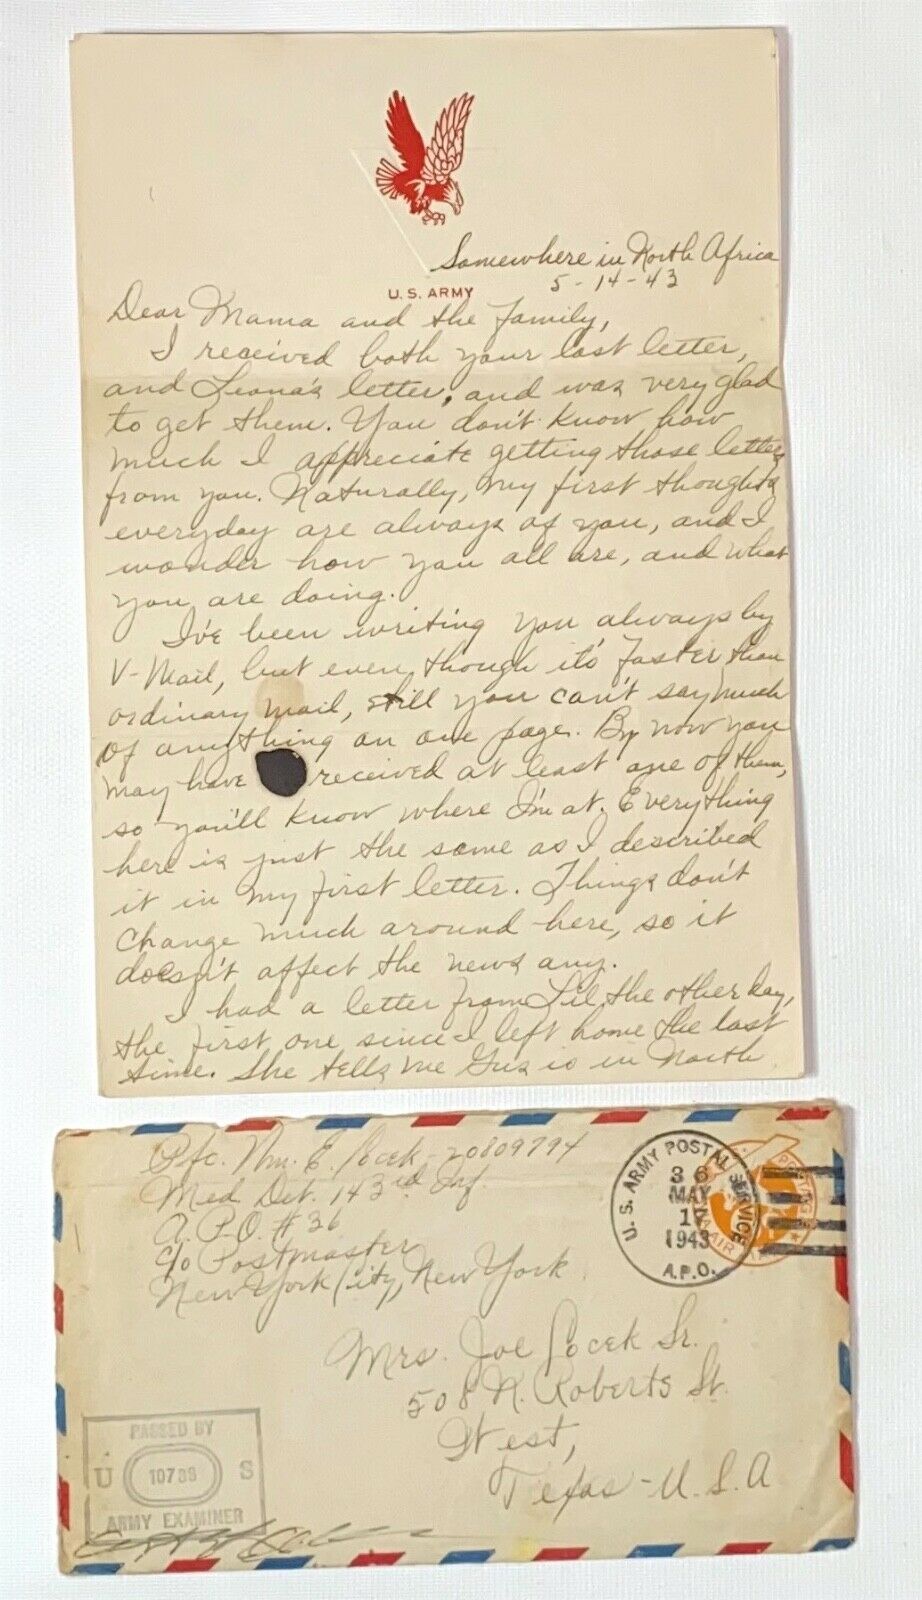 U.S. ARMY
Somewhere in North Africa
5-14-43
Dear Mama and the Family,
I received both your last letter,
and Leona's letter, and was very glad
to get them. You don't know how
much I appreciate getting those letters
from you. Naturally, my first thoughts
everyday are always of you, and I
wonder how you all are, and what
you are doing.
I've been writing you always by
V-Mail, but even though it's faster than
ordinary mail, still you can't say much
of anything on one page. By now you
may have received at least one of them,
so you'll know where I'm at. Everything
here is just the same as I described
it in my first letter. Things don't
change much around here, so it
doesn't affect the news any.
I had a letter from Lil, the other day,
the first one since I left home the last
time. She tells me Gus is in North
Pfc. Wm. E. Kocek - 20809794
Med Det. 143rd Inf.
A.P.O. #36
c/o Postmaster
New York City, New York
U. S. ARMY POSTAL SERVICE
36
MAY
17
1943
A.P.O.
Mrs. Joe Kocek Sr.
508 N. Roberts St.
West,
Texas - U.S.A
PASSED BY
U 10738 S
ARMY EXAMINER